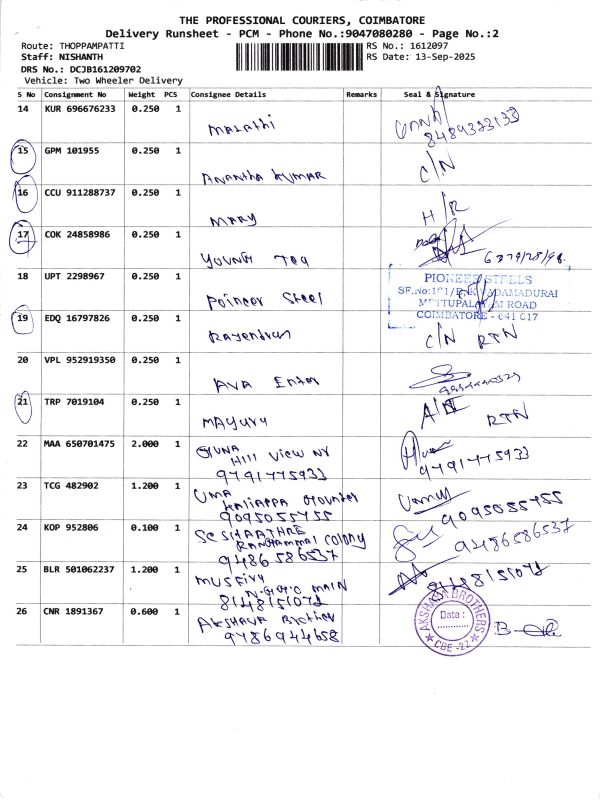 THE PROFESSIONAL COURIERS, COIMBATORE
Delivery Runsheet - PCM - Phone No.:9047080280 - Page No.:2
Route: THOPPAMPATTI
RS No.: 1612097
Staff: NISHANTH
RS Date: 13-Sep-2025
DRS No.: DCJB161209702
Vehicle: Two Wheeler Delivery
S No Consignment No Weight PCS Consignee Details Remarks Seal & Signature
14 KUR 696676233 0.250 1
Malathi
8489333133
15 GPM 101955 0.250 1
Anantha Kumar C/N
16 CCU 911288737 0.250 1
MARY H/R
17 COK 24858986 0.250 1
Young Tea
18 UPT 2298967 0.250 1
Poincer Steel
PIONEER STEELS
MAIN ROAD
COIMBATORE - 641 017
19 EDQ 16797826 0.250 1
Rajendran C/N RTN
20 VPL 952919350 0.250 1
AVA Enter
21 TRP 7019104 0.250 1
Mayuru RTN
22 MAA 650701475 2.000 1
GUNA
Hill View NR
9791775933 9791775933
23 TCG 482902 1.200 1
UMA
9095055755 9095055755
24 KOP 952806 0.100 1
Colony
9486586537 9486586537
25 BLR 501062237 1.200 1
MAIN
8148151072 8148151072
26 CNR 1891367 0.600 1
Akshaya Brother
9786944658
AKSHAYA BROTHERS
Date :
CBE -22